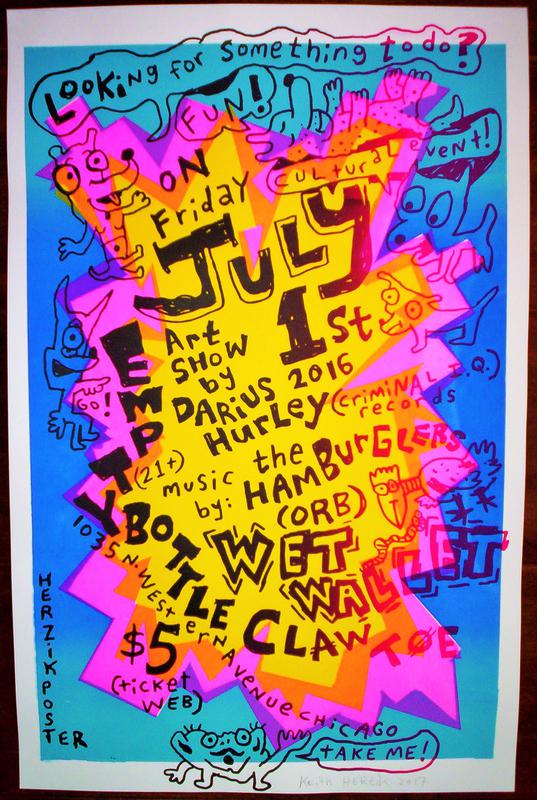 LOOKING for something to do?
FUN!
CULTURAL EVENT!
ON
Friday
JULY
1st
2016
Art
SHOW
by
DARIUS
HURLEY
(CRIMINAL I.Q.)
records
GO!
EMPTY BOTTLE
(21+)
music
by:
the
HAMBURGLERS
(ORB)
WET
WALLET
CLAW TOE
1035 N. WESTERN AVENUE CHICAGO
$5
(ticket
WEB)
HERZIK POSTER
TAKE ME!
2017